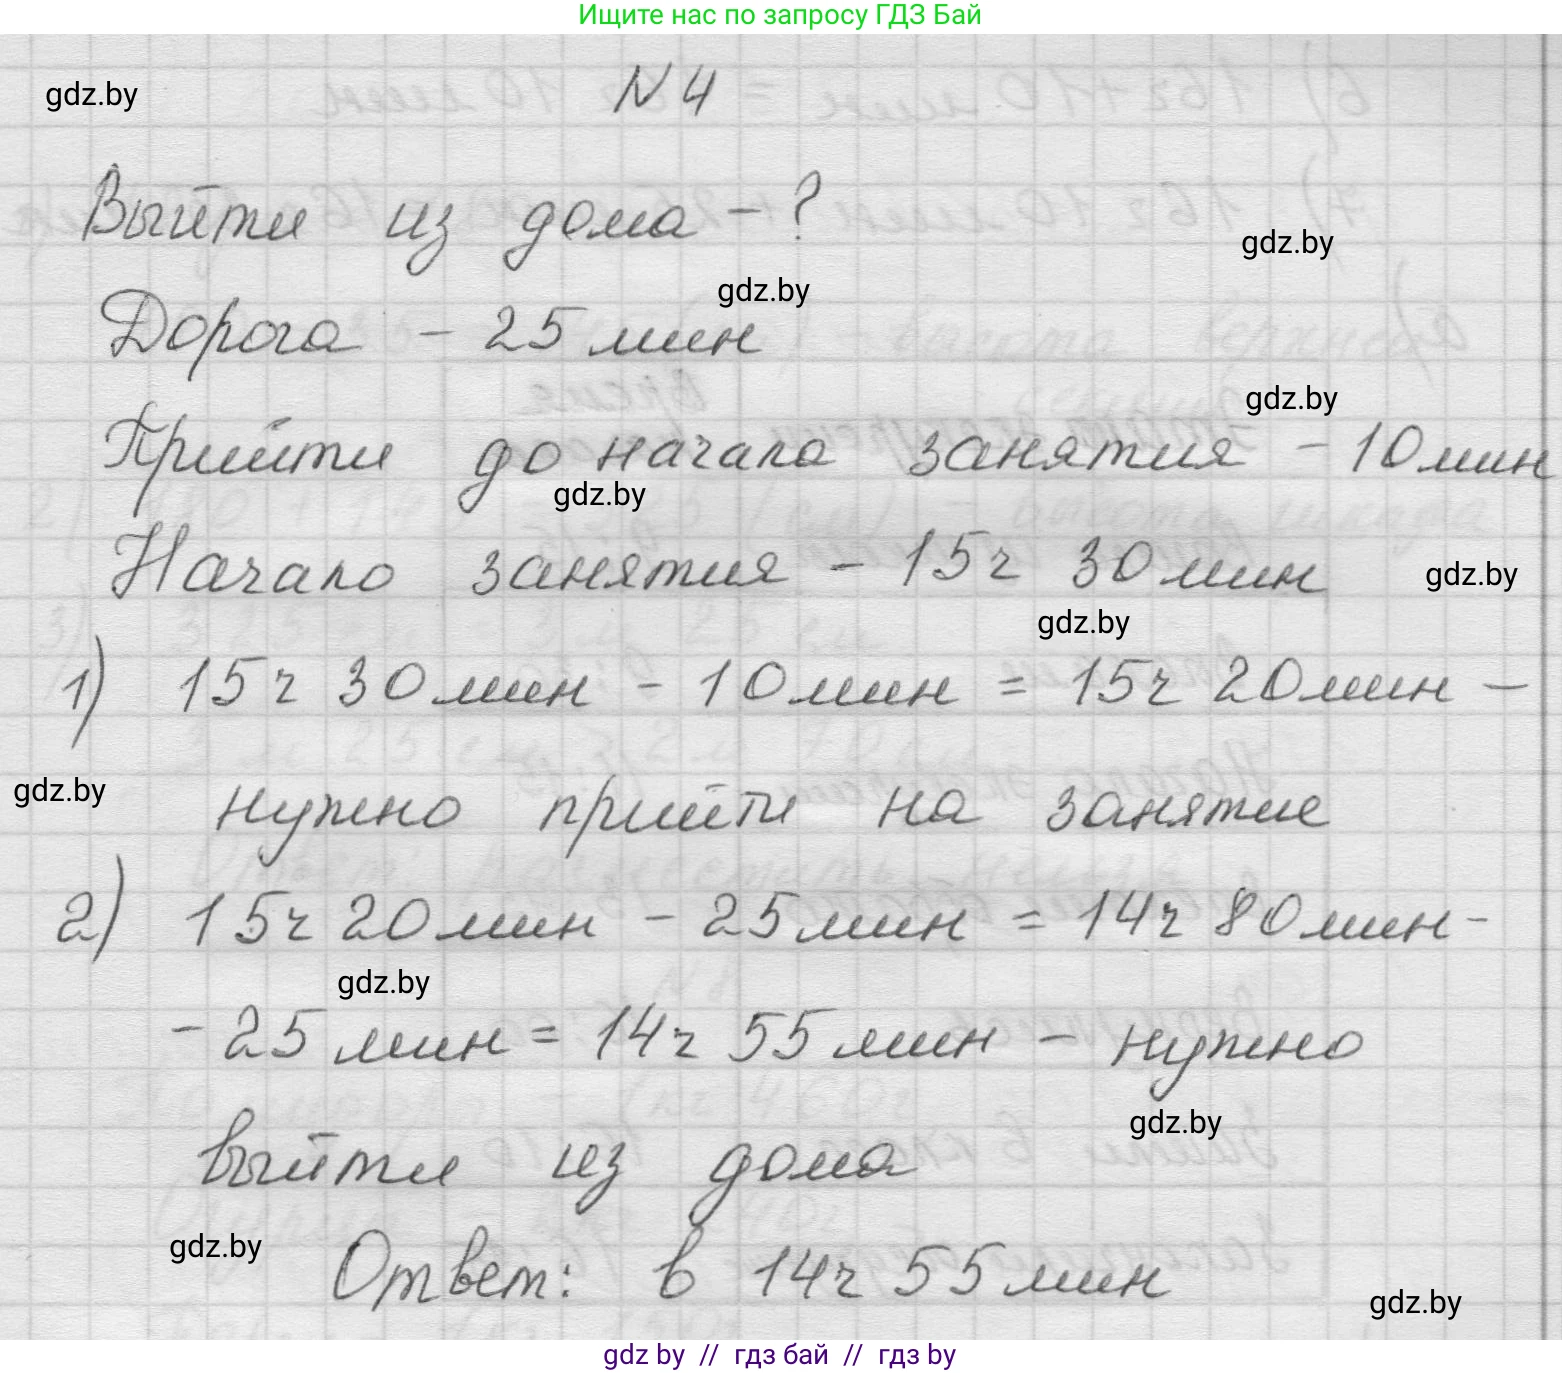 Ищите нас по запросу ГДЗ Бай
gdz.by
N 4
Выйти из дома - ?
gdz.by
gdz.by
Дорога - 25 мин
gdz.by
Прийти до начала занятия - 10 мин
gdz.by
Начало занятия - 15 ч 30 мин
gdz.by
gdz.by
1) 15 ч 30 мин - 10 мин = 15 ч 20 мин -
gdz.by
нужно прийти на занятие
2) 15 ч 20 мин - 25 мин = 14 ч 80 мин -
gdz.by
- 25 мин = 14 ч 55 мин - нужно
gdz.by
выйти из дома
gdz.by
Ответ: в 14 ч 55 мин
gdz.by
gdz by // гдз бай // гдз by